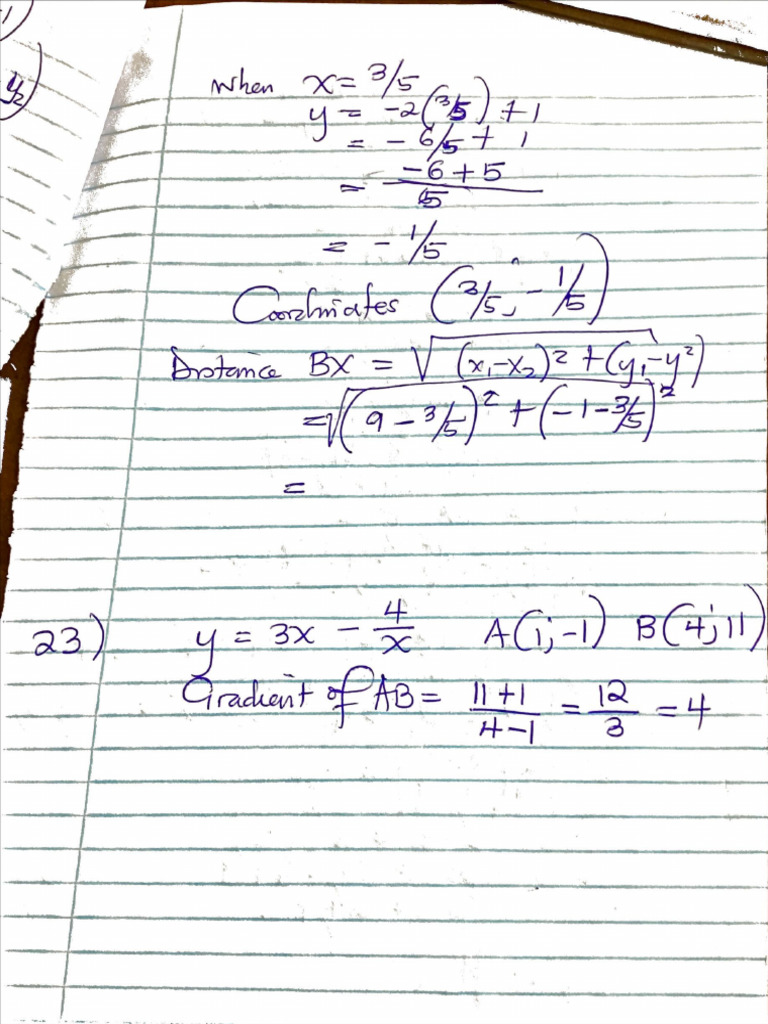 y2)
When x = 3/5
y = -2(3/5) + 1
= - 6/5 + 1
= (-6 + 5)/5
= - 1/5
Coordniates (3/5; - 1/5)
Distance BX = √(x₁-x₂)² + (y₁-y²)
= √(9 - 3/5)² + (-1 - 3/5)²
=
23) y = 3x - 4/x A(1;-1) B(4;11)
Gradient of AB = (11+1)/(4-1) = 12/3 = 4